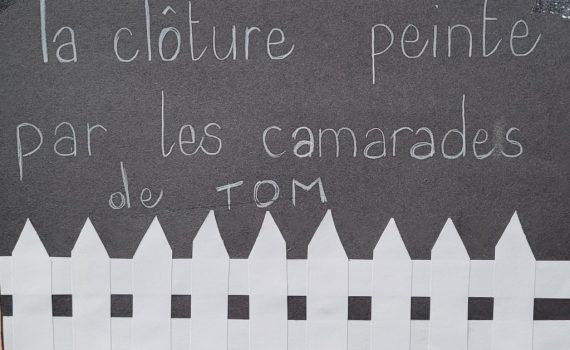 la clôture peinte
par les camarades
de TOM